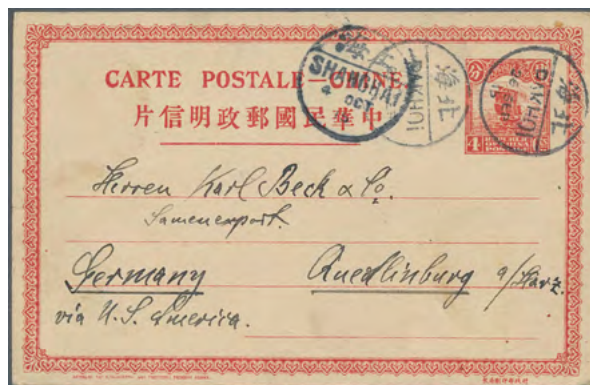 CARTE POSTALE—CHINE.
中華民國郵政明信片
上海
SHANGHAI
4
OCT
北海
PAKHOI
北海
PAKHOI
分
4
Herren Karl Beck & Co.
Samenexport.
Germany Quedlinburg a/Harz.
via U.S. America.